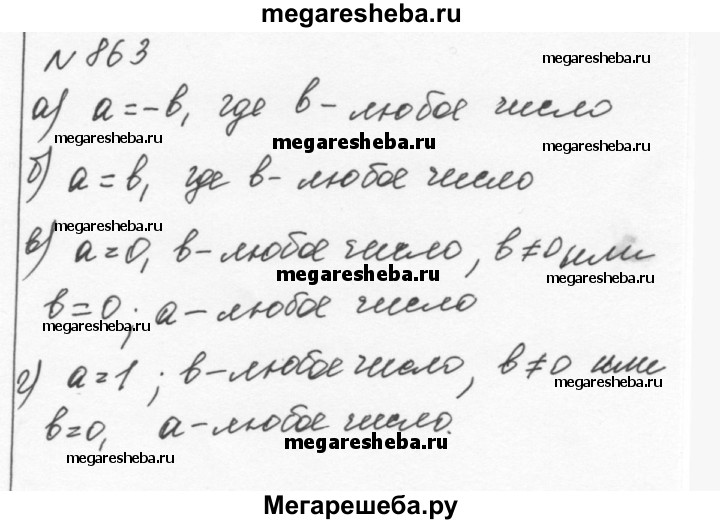 megaresheba.ru
N 863
megaresheba.ru
а) a = -b, где b - любое число
megaresheba.ru
megaresheba.ru
megaresheba.ru
б) a = b, где b - любое число
megaresheba.ru
в) a = 0, b - любое число, b ≠ 0 или
megaresheba.ru
megaresheba.ru
b = 0; a - любое число
megaresheba.ru
г) a = 1; b - любое число, b ≠ 0 или
megaresheba.ru
b = 0, a - любое число.
megaresheba.ru
megaresheba.ru
Мегарешеба.ру